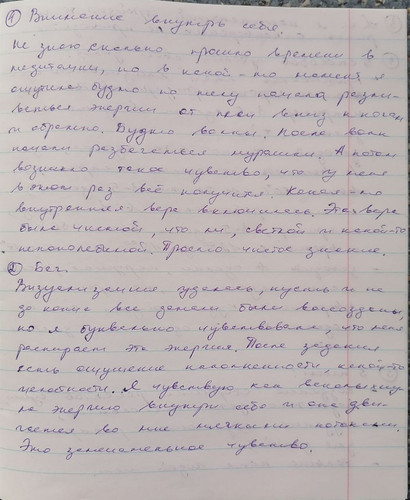 ① Внимание внутрь себя.
Не знаю сколько прошло времени в
медитации, но в какой-то момент я
ощутила будто по телу начала разли-
ваться энергия от плеч вниз к ногам
и обратно. Будто волны. После волн
начали разбегаться мурашки. А потом
возникло такое чувство, что у меня
в этот раз всё получится. Какая-то
внутренняя вера включилась. Эта вера
была чистой, что ли, светлой и какой-то
непоколебимой. Просто чистое знание.
② Бег.
Визуализация удалась, пусть и не
до конца все детали были воссозданы,
но я буквально чувствовала, что меня
распирает эта энергия. После задания
есть ощущение наполненности, какой-то
целостности. Я чувствую как
энергию внутри себя и она дви-
гается во мне мягкими потоками.
Это замечательное чувство.